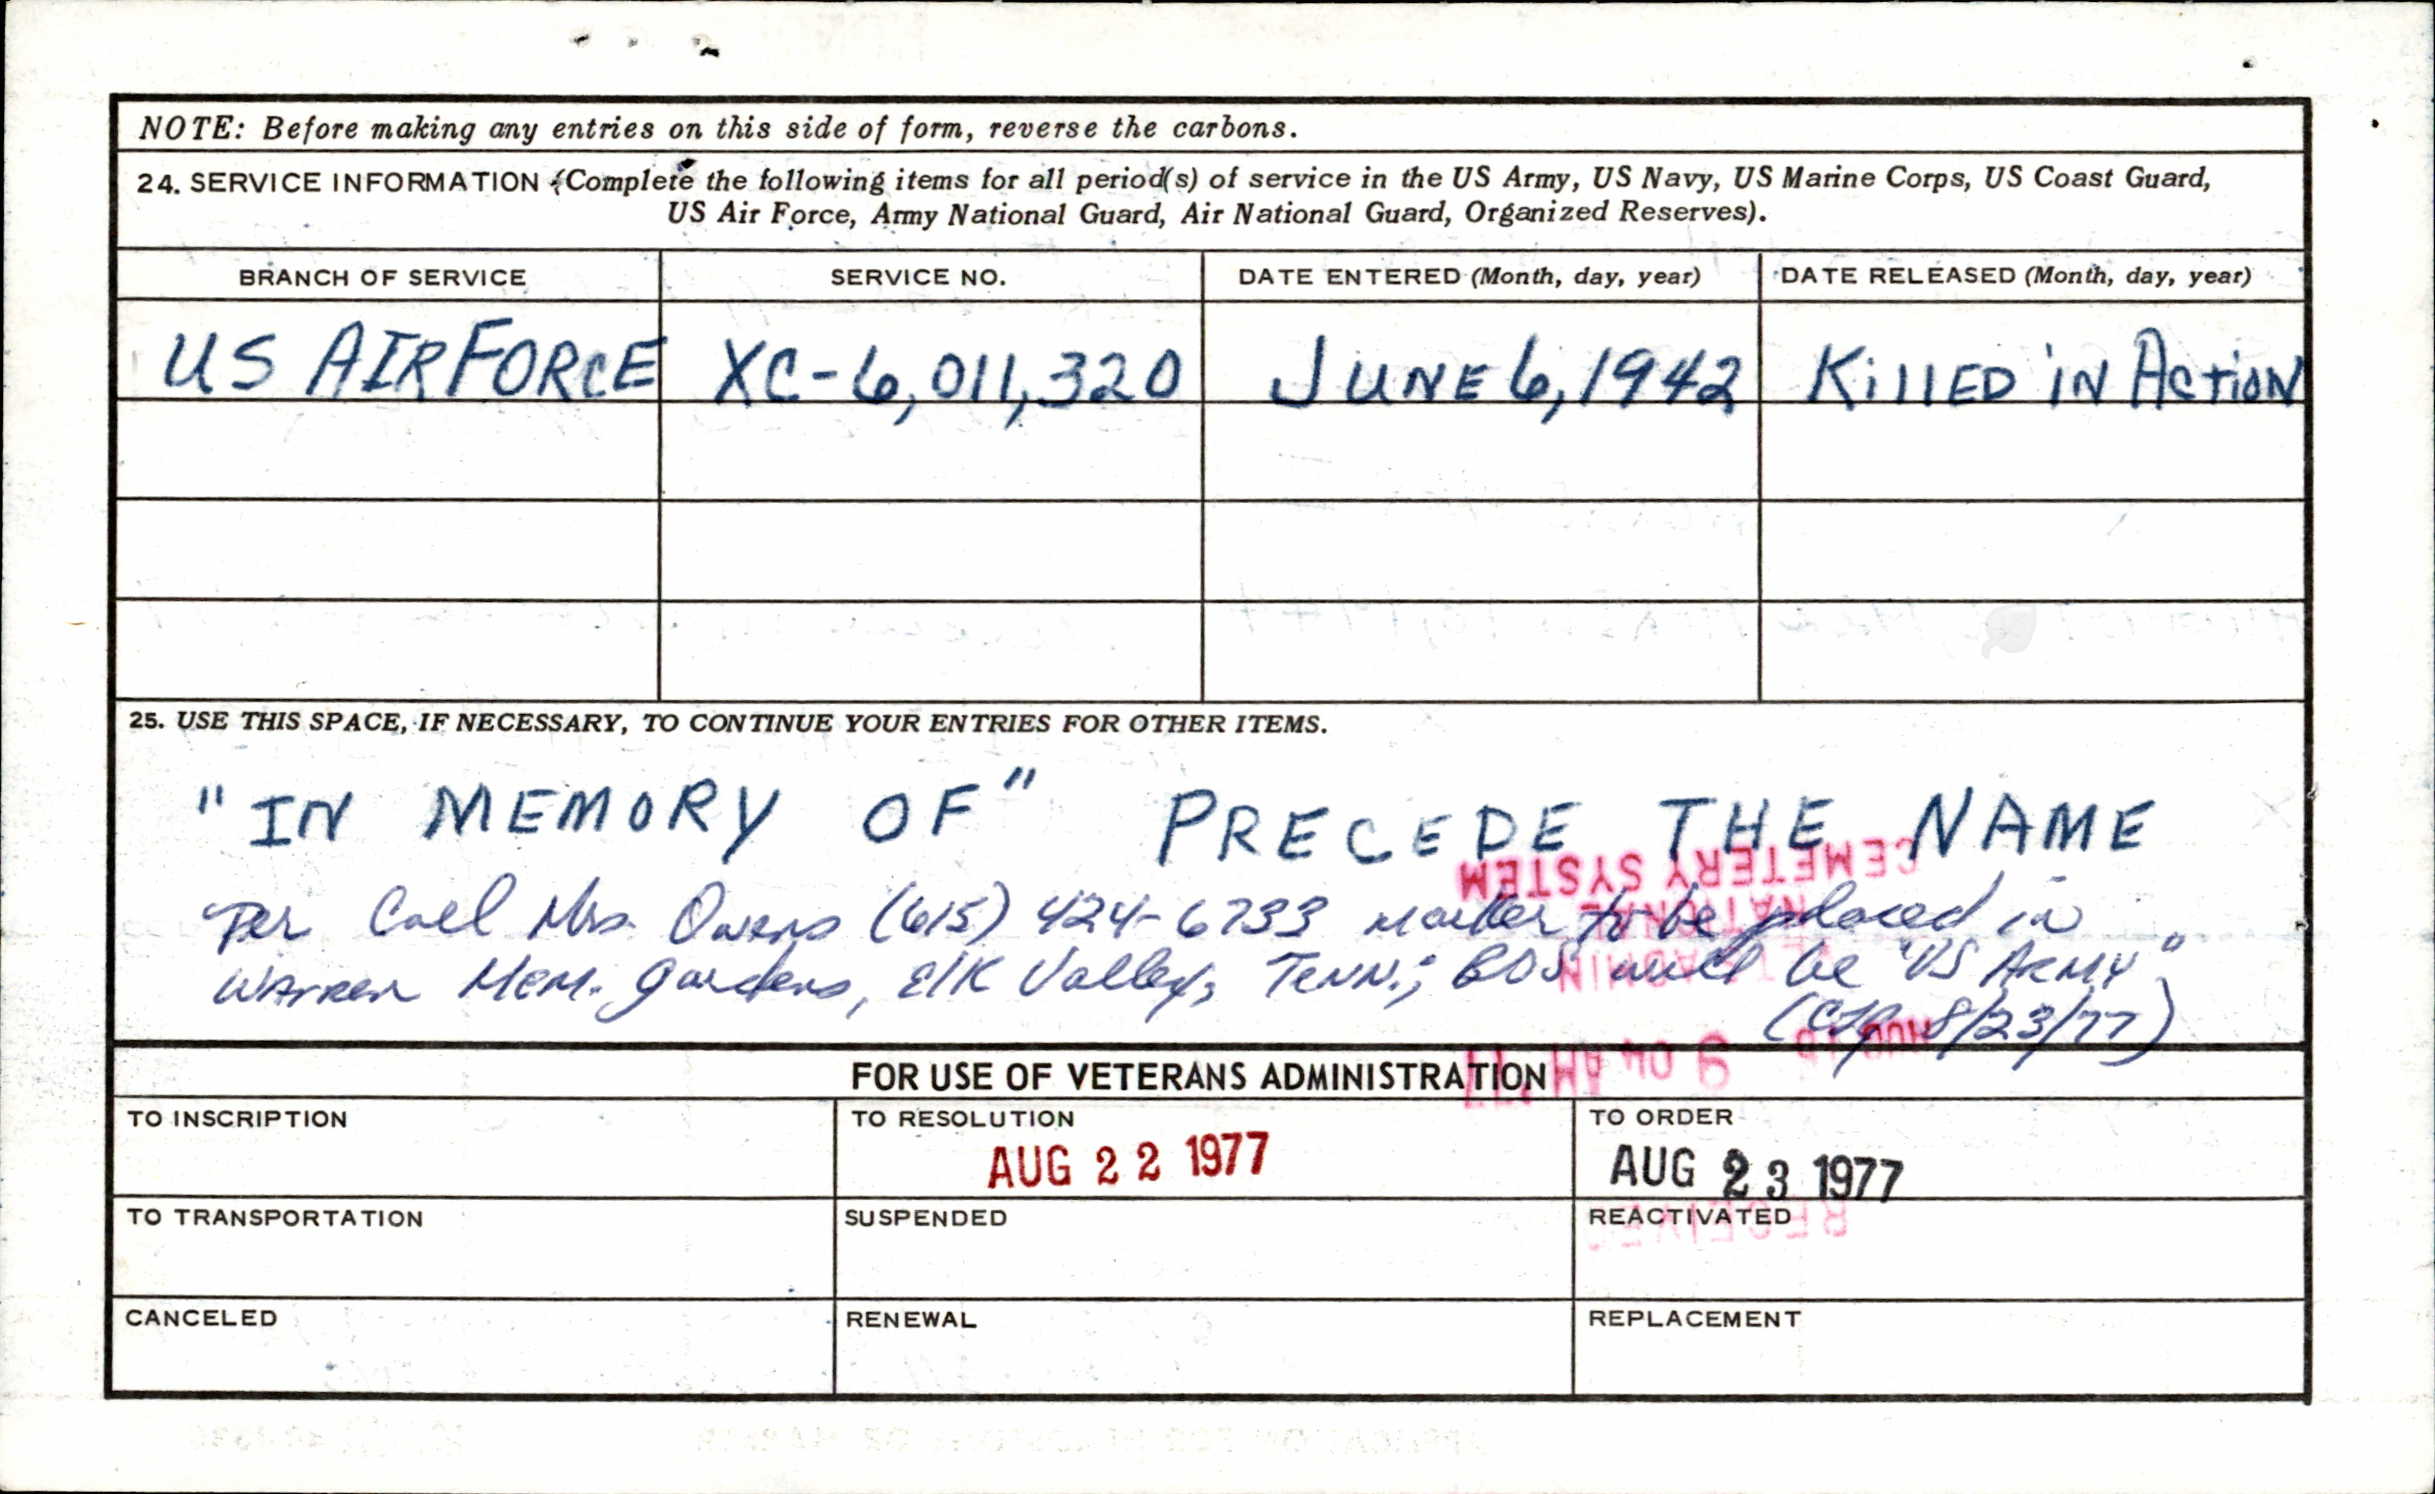 NOTE: Before making any entries on this side of form, reverse the carbons.
24. SERVICE INFORMATION (Complete the following items for all period(s) of service in the US Army, US Navy, US Marine Corps, US Coast Guard,
US Air Force, Army National Guard, Air National Guard, Organized Reserves).
BRANCH OF SERVICE SERVICE NO. DATE ENTERED (Month, day, year) DATE RELEASED (Month, day, year)
US AIR FORCE XC-6,011,320 JUNE 6, 1942 KillED iN ActioN
25. USE THIS SPACE, IF NECESSARY, TO CONTINUE YOUR ENTRIES FOR OTHER ITEMS.
"IN MEMORY OF" PRECEDE THE NAME
CEMETERY SYSTEM
Per Call Mrs. Owens (615) 424-6733 marker to be placed in
NATIONAL
Warren Mem. Gardens, Elk Valley, Tenn.; BOS will be "US ARMY"
(8/23/77)
9 04 AM '77
FOR USE OF VETERANS ADMINISTRATION
TO INSCRIPTION TO RESOLUTION TO ORDER
AUG 22 1977 AUG 23 1977
TO TRANSPORTATION SUSPENDED REACTIVATED
RECEIVED
CANCELED RENEWAL REPLACEMENT